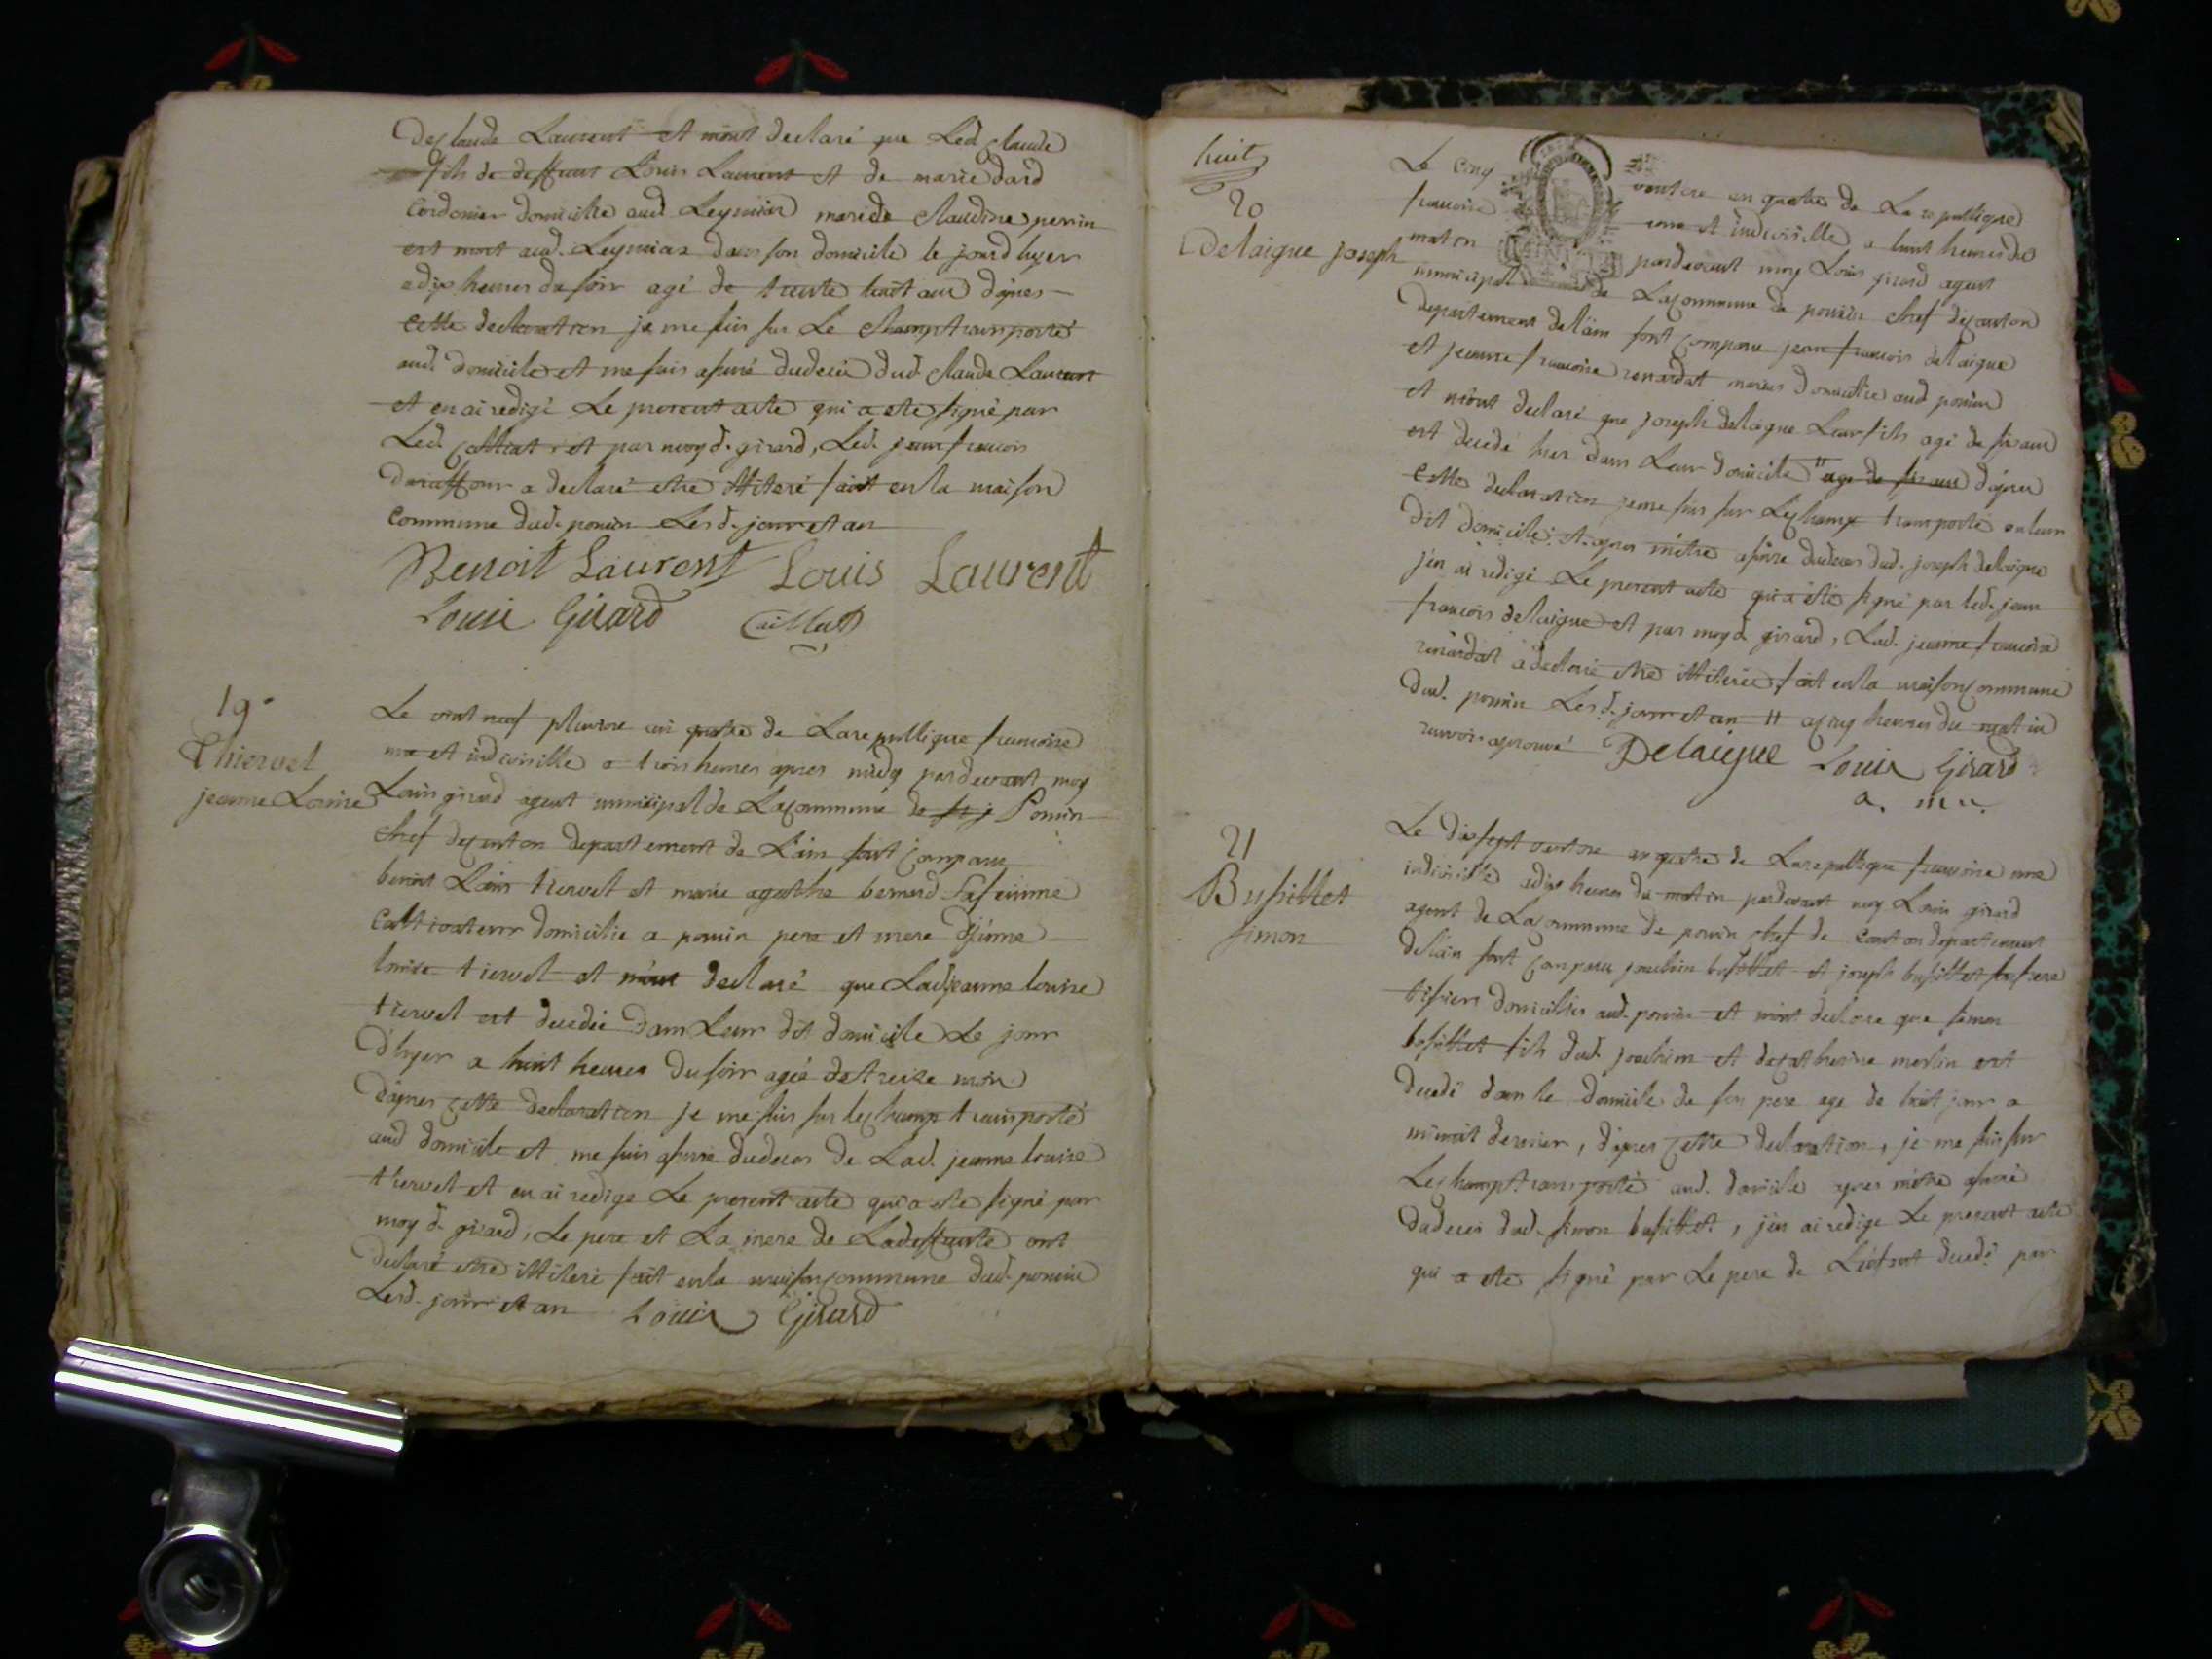 de claude Laurent et m'ont declaré que Led. claude
fils de deffunt Louis Laurent et de marie dard
Cordonier domicilié aud. Leymiat mari de claudine perrin
est mort aud. Leymiat dans son domicile le jour d'hyer
a dix heures du soir agé de trente huit ans d'apres
cette declaration je me suis sur Le champ transporté
aud. domicile et me suis assuré du decès dud. claude Laurent
et en ai redigé Le present acte qui a ete signé par
Led. Calliat et par moy d. girard, Led. jean francois
a declaré etre illiteré fait en la maison
commune dud. poncin Les d. jour et an
Benoit Laurent Louis Laurent
Louis Girard Caillat
19
Thiervet
jeanne Louise
Le vint neuf pluviose an quatre de La republique francoise
une et indivisille a trois heures apres midy pardevant moy
Louis girard agent municipal de La commune de Poncin
chef de canton departement de L'ain sont comparu
benoit Louis tiervet et marie agathe bernard sa femme
cultivateur domicilié a poncin pere et mere de jeanne
louise tiervet et m'ont declaré que Lad. jeanne louise
tiervet est decedée dans Leur dit domicile Le jour
d'hyer a huit heures du soir agée de treize mois
d'apres cette declaration je me suis sur le champ transporté
aud domicile et me suis assuré du deces de Lad. jeanne louise
tiervet et en ai redigé Le present acte qui a ete signé par
moy d. girard, Le pere et La mere de La deffunte ont
declaré etre illiteré fait en la maison commune dud. poncin
Les d. jour et an Louis Girard
huit
20
Delaigue joseph
Le cinq ventose an quatre de La republique
francoise une et indivisille a huit heures du
matin pardevant moy Louis girard agent
municipal de La commune de poncin chef de canton
departement de l'ain sont comparu jean francois delaigue
et jeanne francoise renardat mariés domicilié aud poncin
et m'ont declaré que joseph delaigue Leur fils agé de six ans
est decedé hier dans Leur domicile " agé de six ans d'apres
cette declaration je me suis sur Le champ transporté au leur
dit domicile et apres m'etre assuré du deces dud. joseph delaigue
j'en ai redigé Le present acte qui a été signé par led. jean
francois delaigue et par moy d. girard, Lad. jeanne francoise
renardat a declaré etre illiterée, fait en la maison commune
dud. poncin Les d. jour et an " a cinq heures du matin
renvoi aprouvé Delaigue Louis Girard
a. m.
21
Bussillet
simon
Le dix sept ventose an quatre de La republique francoise une
indivisille a dix heures du matin pardevant moy Louis girard
agent de La commune de poncin chef de canton departement
de l'ain sont comparu joachim bussillet et joseph bussillet son frere
tissiers domiciliés aud. poncin et m'ont declaré que simon
bussillet fils dud. joachim et de catherine merlin est
decedé dans le domicile de son pere agé de huit jour a
minuit dernier, d'apres cette declaration, je me suis sur
Le champ transporté aud. domicile apres m'etre assuré
du deces dud. simon bussillet, j'en ai redigé Le present acte
qui a ete signé par Le pere de L'enfant decedé par